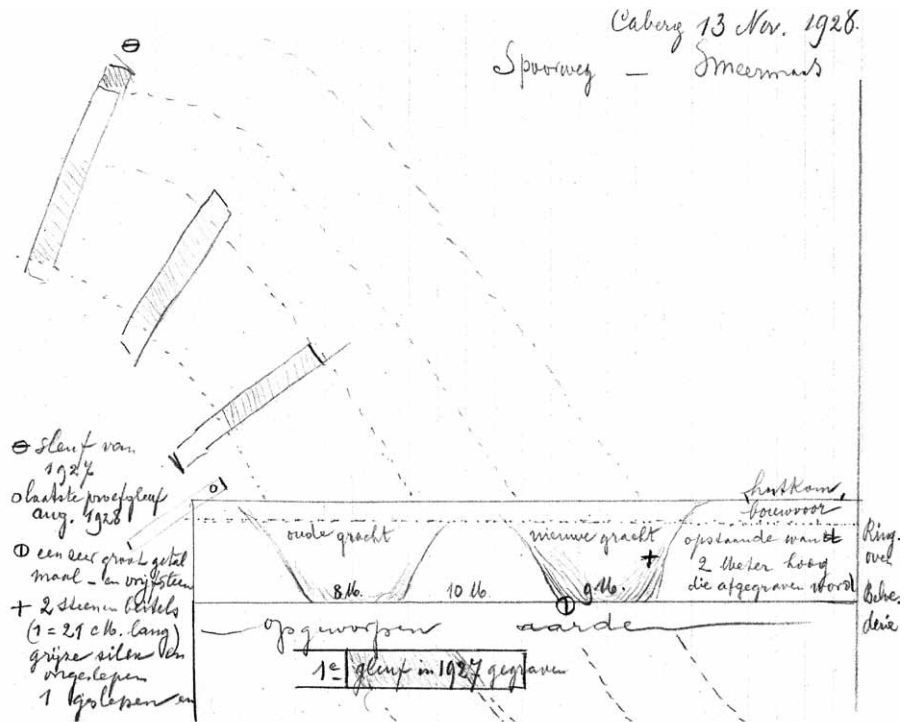 Caberg 13 Nov. 1928.
Spoorweg — Smeermaas
⊖ sleuf van
1927
o laatste proefgleuf
aug. 1928
⦶ een zeer groot getal
maal- en wrijfsteen
+ 2 steenen beitels
(1 = 21 cM. lang)
grijze silex en
ongeslepen
1 geslepen en
bouwvoor
oude gracht
nieuwe gracht
opstaande wand
2 Meter hoog
die afgegraven word
8 M.
10 M.
9 M.
Ring-
oven
Belve-
derie
opgeworpen aarde
1e gleuf in 1927 gegraven